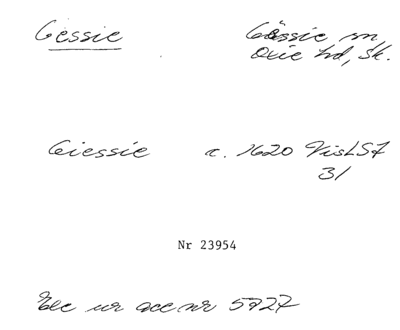 Gessie Gössie sn
Oxie hd, Sk.
Giessie c. 1620 VisLSt
31
Nr 23954
Exc ur acc nr 5727